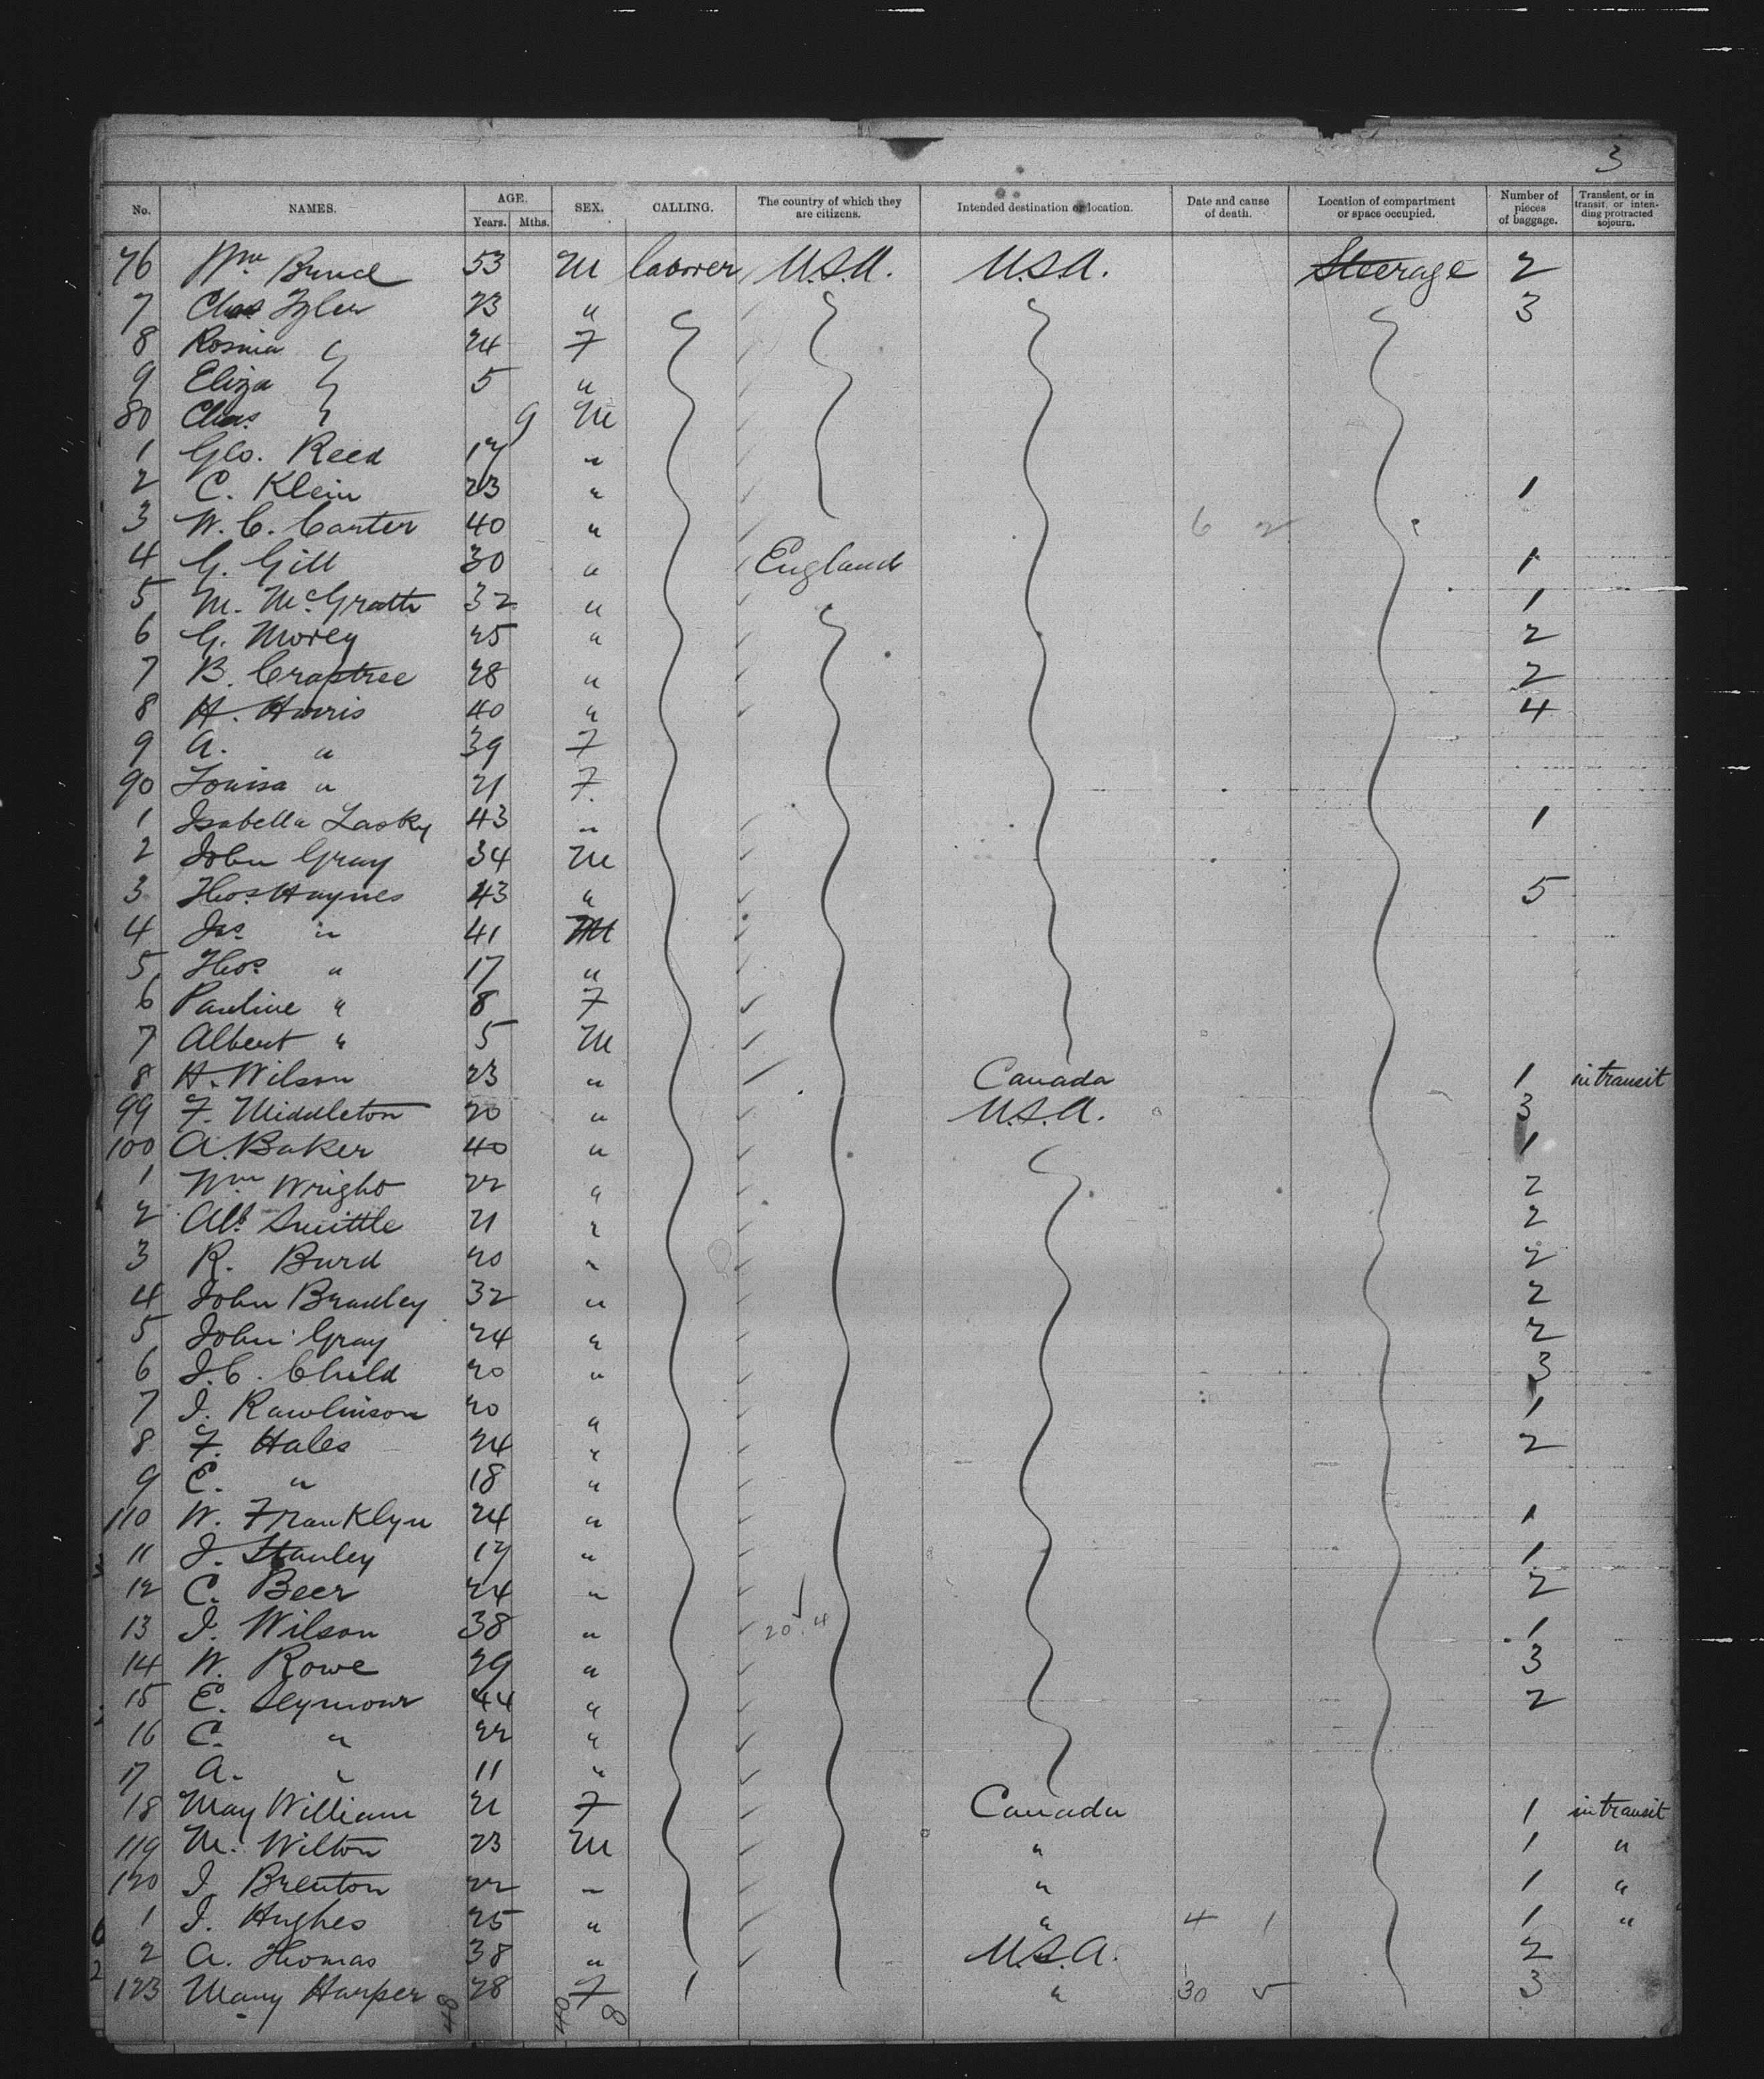 3
No. NAMES. AGE. Years. Mths. SEX. CALLING. The country of which they are citizens. Intended destination or location. Date and cause of death. Location of compartment or space occupied. Number of pieces of baggage. Transient, or in transit, or intending protracted sojourn.
76 Wm 53 M laborer U.S.A. U.S.A. Steerage 2
7 Chas Tyler 23 " 3
8 Rosina " 24 F
9 Eliza " 5 "
80 Chas. " 9 M
1 Geo. Reed 17 "
2 C. Klein 23 " 1
3 W. C. Carter 40 " 6 2
4 G. Gill 30 " England 1
5 M. McGrath 32 " 1
6 G. Morey 25 " 2
7 B. Craptree 28 " 2
8 H. Harris 40 " 4
9 A. " 39 F
90 Louisa " 21 F.
1 Isabella Lasky 43 " 1
2 John Gray 34 M
3 Thos. Haynes 43 " 5
4 Jas " 41 M
5 Thos " 17 "
6 Pauline " 8 F
7 Albert " 5 M
8 H. Wilson 23 " Canada 1 in transit
99 F. Middleton 20 " U.S.A. 3
100 A. Baker 40 " 1
1 Wm Wright 22 " 2
2 Alb. 21 " 2
3 R. Burd 20 " 2
4 John Bradley 32 " 2
5 John Gray 24 " 2
6 J. C. Child 20 " 3
7 J. Rawlinson 20 " 1
8 F. Hales 24 " 2
9 E. " 18 "
110 W. Franklyn 24 " 1
11 J. Stanley 17 " 1
12 C. Beer 24 " 2
13 J. Wilson 38 " 20.4 1
14 W. Rowe 29 " 3
15 E. Seymour 44 " 2
16 C. " 22 "
17 A. " 11 "
18 May William 21 F Canada 1 in transit
119 M. Wilton 23 M " 1 "
120 J. Brenton 22 " " 1 "
1 J. Hughes 25 " " 4 1 1 "
2 A. Thomas 38 " U.S.A. 2
123 Mary Harper 28 F 1 " 30 5 3
48 40 8